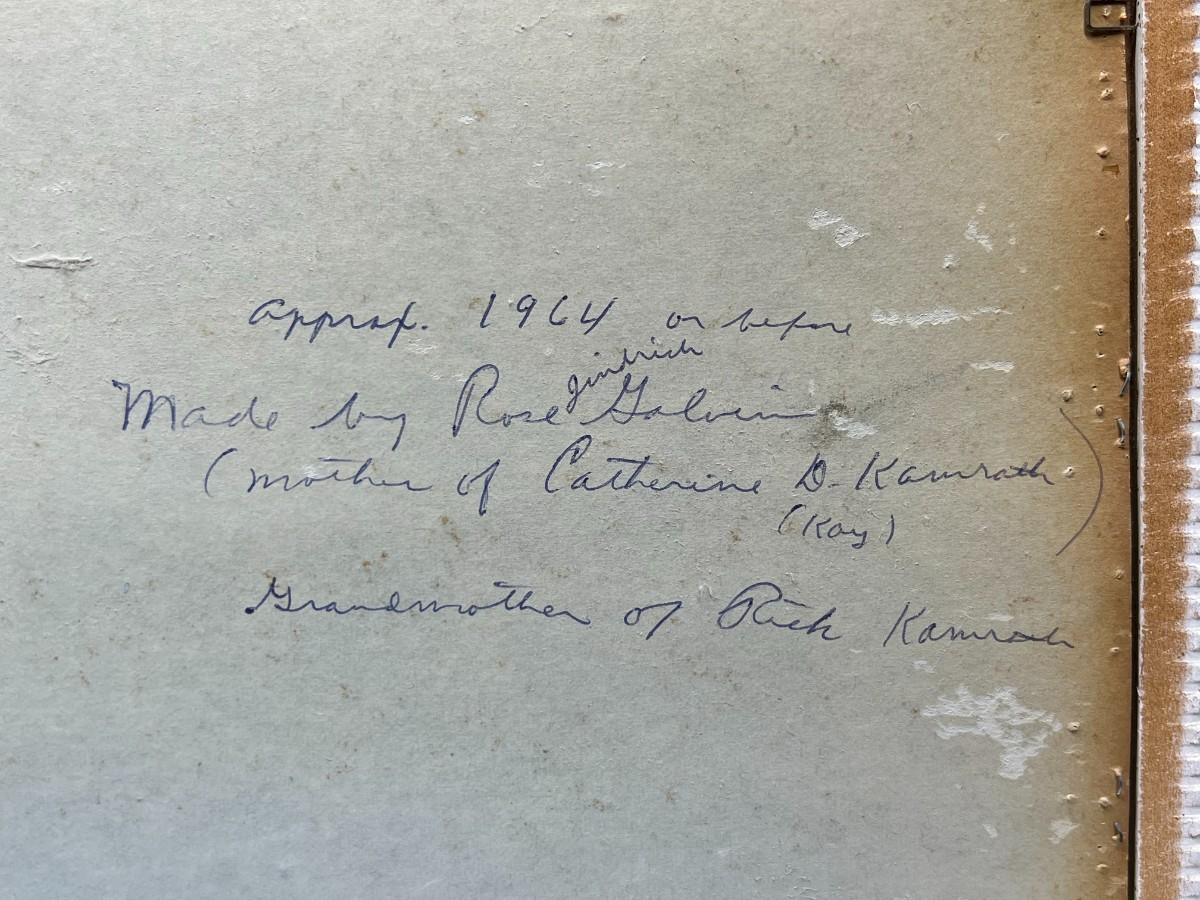 Approx. 1964 or before
Jindrich
Made by Rose Galvin
(mother of Catherine D. Kamrath)
(Kay)
Grandmother of Rick Kamrath